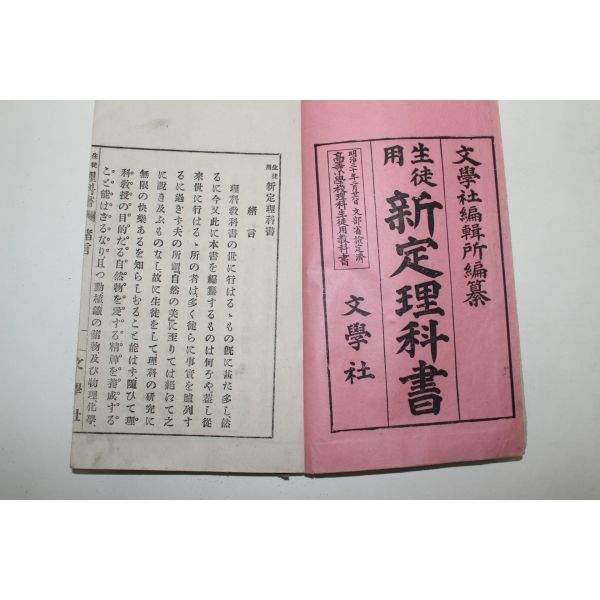 文學社編輯所編纂
生徒用 新定理科書
高等小學校理科生徒用教科書
文學社
生徒用 新定理科書
緒言
理科教科書の世に行はるゝもの既に甚だ多し、然
るに今又此に本書を編纂するものは何ぞや蓋し從
來世に行はるゝ所の者は多く徒らに事實を臚列す
るに過ぎず夫の所謂「自然の美」に至りては絕えて之
に說き及ぶものなし故に生徒をして理科の硏究に
無限の快樂あるを知らしむること能はず、隨ひて理
科敎授の目的たる自然物を愛する精神を養成する
こと能はざるなり、且つ動植鑛の諸物及び物理、化學、
生徒用 理科書 緒言
一
文學社